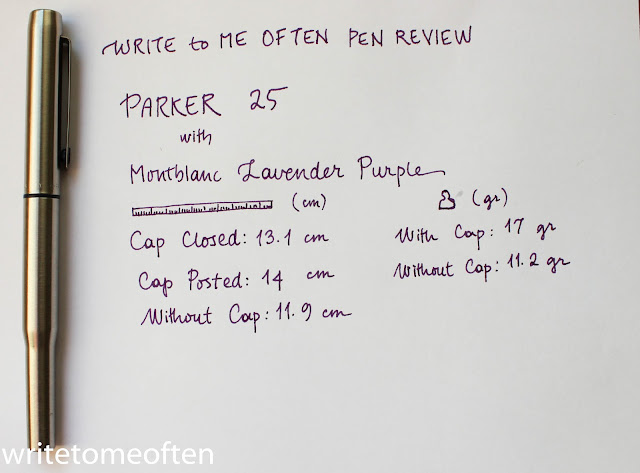 WRITE to ME OFTEN PEN REVIEW
PARKER 25
with
Montblanc Lavender Purple
(cm)
Cap Closed: 13.1 cm
Cap Posted: 14 cm
Without Cap: 11.9 cm
(gr)
With Cap: 17 gr
Without Cap: 11.2 gr
writetomeoften